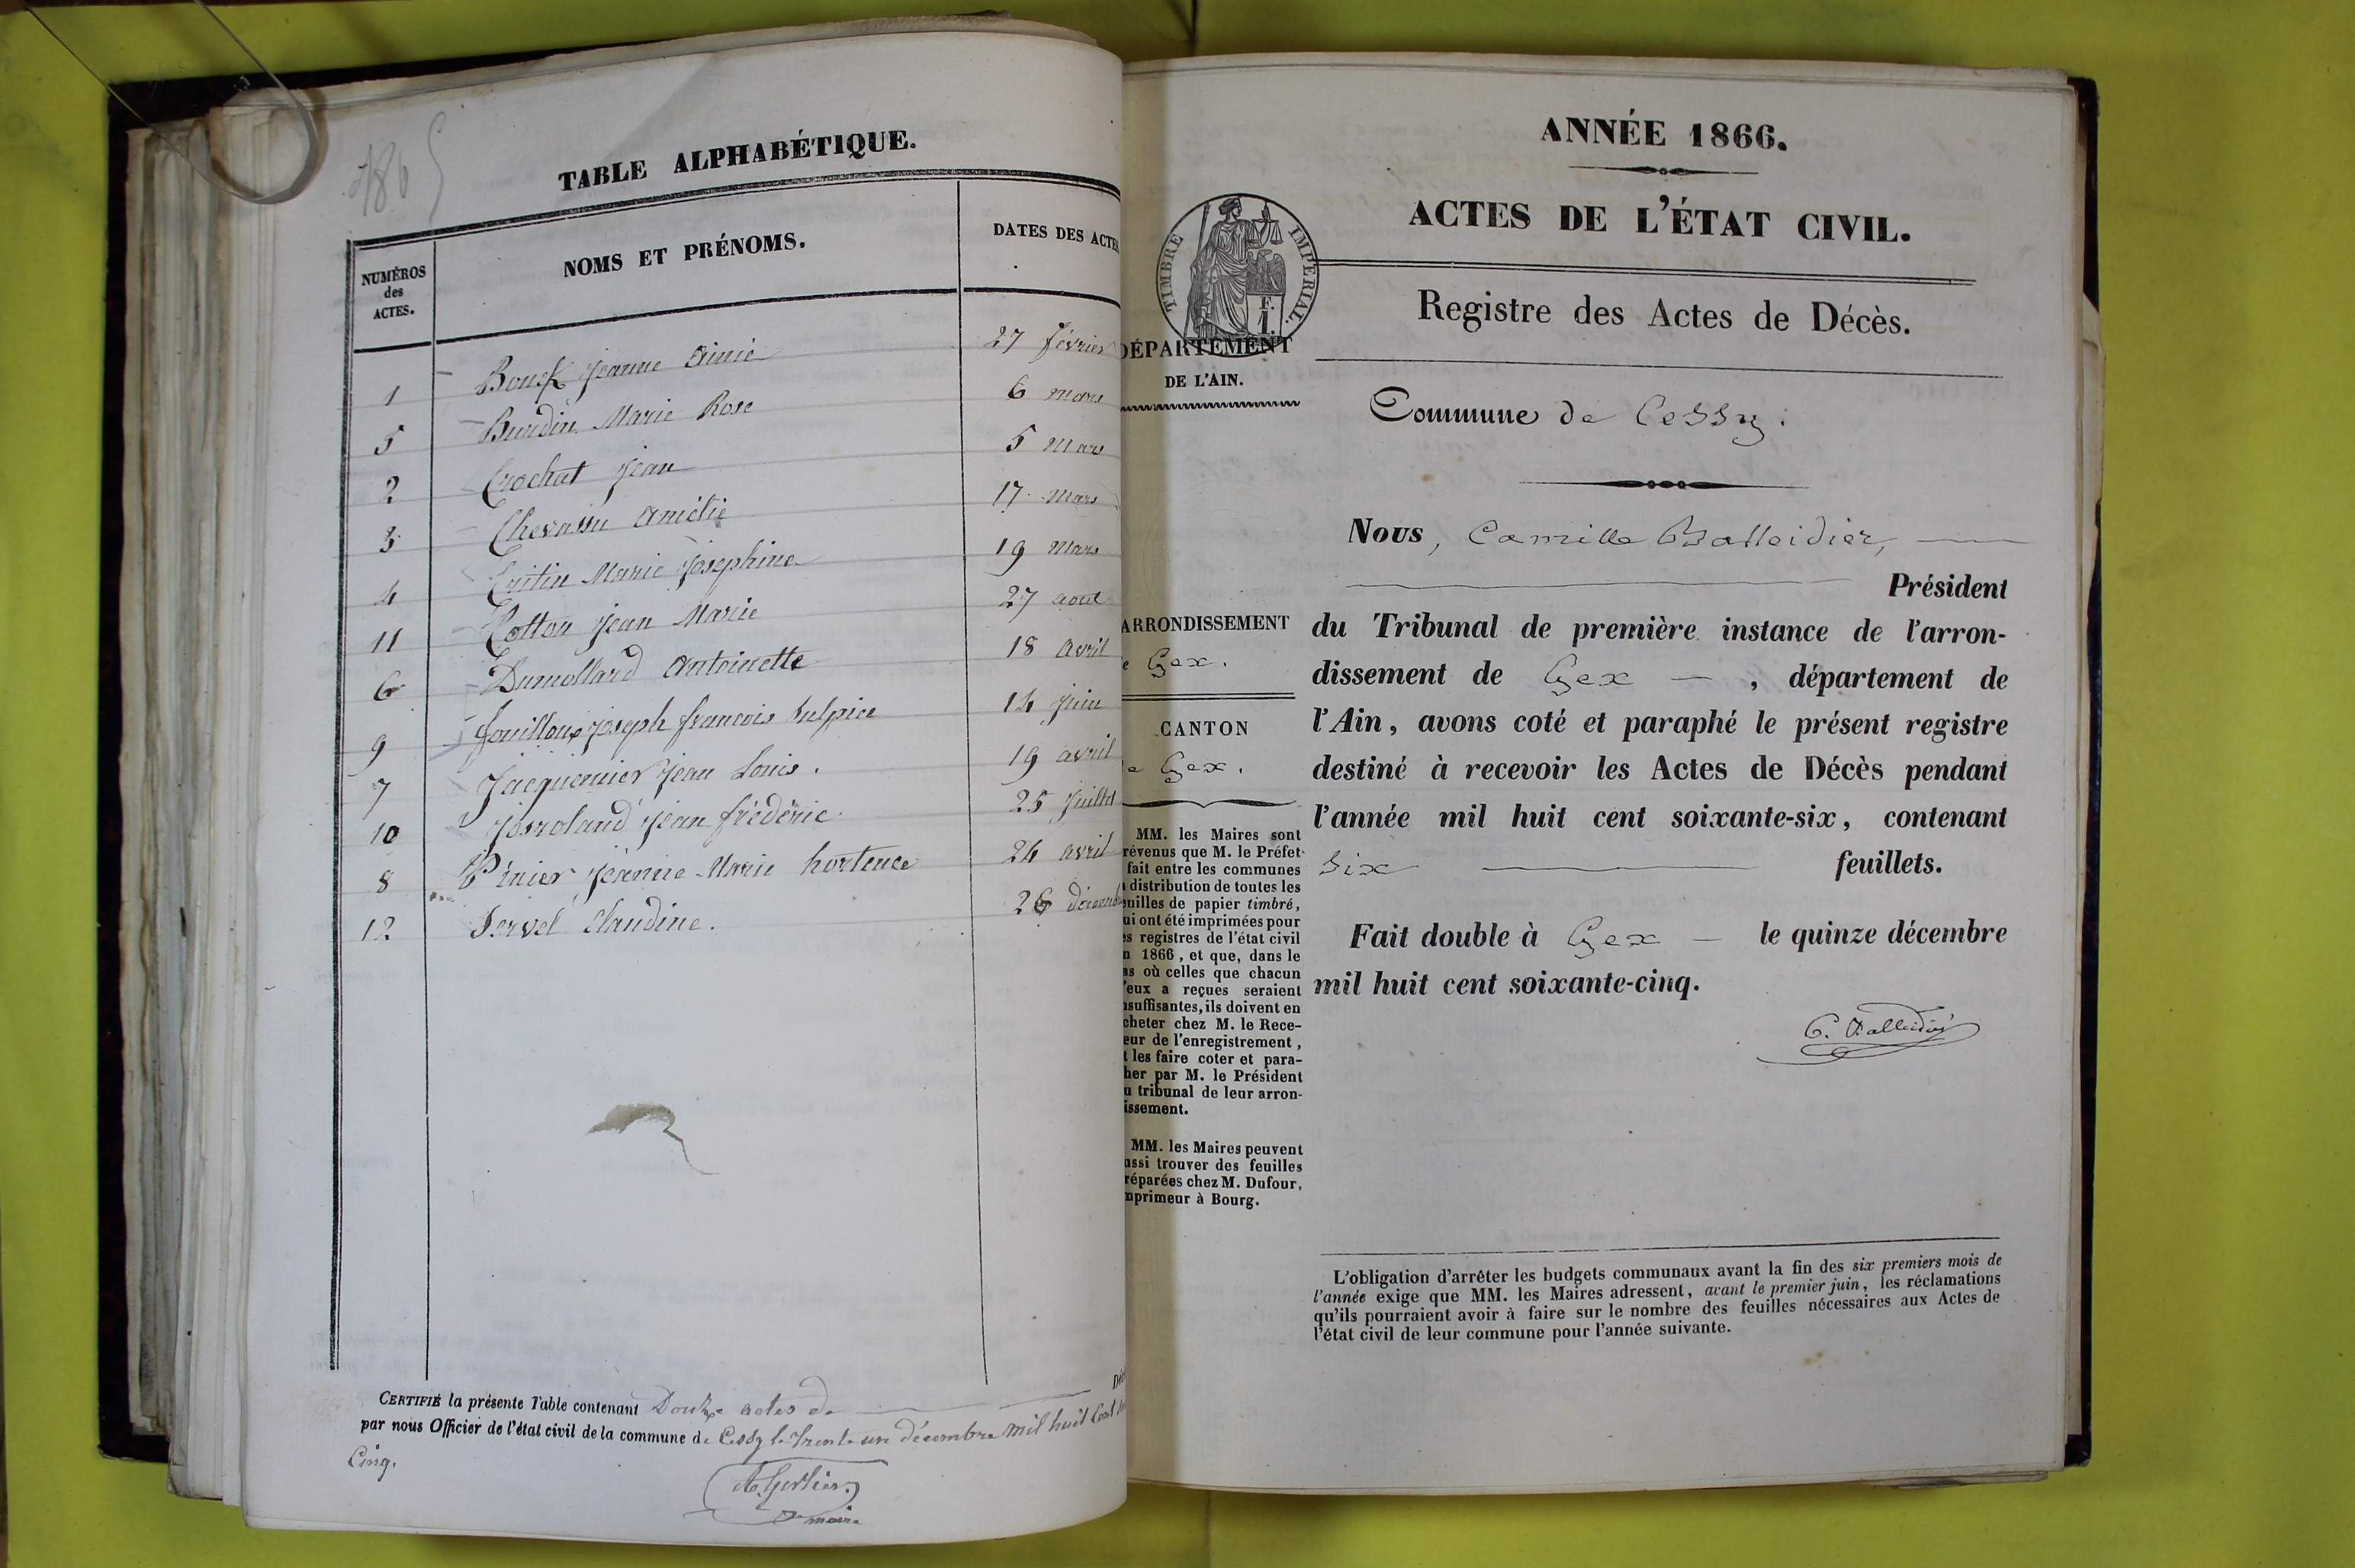 1865
TABLE ALPHABÉTIQUE.
NUMÉROS des ACTES. NOMS ET PRÉNOMS. DATES DES ACTES
1 Jeanne 27 février
5 Burdin Marie Rose 6 mars
2 Crochat Jean 5 Mars
3 Chevassu Amélie 17 Mars
4 Marie Josephine 19 Mars
11 Cotton Jean Marie 27 aout
6 Dumollard Antoinette 18 avril
9 Fouilloux Joseph francois Sulpice 14 juin
7 Jacquemier Jean Louis. 19 avril
10 Jean frédéric 25 Juillet
8 Marie hortence 26 avril
12 Servel Claudine. 26 décemb
CERTIFIÉ la présente Table contenant Douze actes de
par nous Officier de l'état civil de la commune de Cessy le Trente un décembre mil huit Cent
Cinq.
maire
ANNÉE 1866.
ACTES DE L'ÉTAT CIVIL.
TIMBRE IMPERIAL.
F. I.
Registre des Actes de Décès.
DÉPARTEMENT
DE L'AIN.
Commune de Cessy.
ARRONDISSEMENT
e Gex.
CANTON
e Gex.
MM. les Maires sont
révenus que M. le Préfet
fait entre les communes
distribution de toutes les
uilles de papier timbré,
ui ont été imprimées pour
es registres de l'état civil
n 1866, et que, dans le
as où celles que chacun
'eux a reçues seraient
nsuffisantes, ils doivent en
cheter chez M. le Rece-
eur de l'enregistrement,
t les faire coter et para-
her par M. le Président
u tribunal de leur arron-
issement.
MM. les Maires peuvent
ussi trouver des feuilles
réparées chez M. Dufour,
mprimeur à Bourg.
Nous, Camille Balleidier,
Président
du Tribunal de première instance de l'arron-
dissement de Gex — , département de
l'Ain, avons coté et paraphé le présent registre
destiné à recevoir les Actes de Décès pendant
l'année mil huit cent soixante-six, contenant
Six feuillets.
Fait double à Gex — le quinze décembre
mil huit cent soixante-cinq.
C. Balleidier
L'obligation d'arrêter les budgets communaux avant la fin des six premiers mois de
l'année exige que MM. les Maires adressent, avant le premier juin, les réclamations
qu'ils pourraient avoir à faire sur le nombre des feuilles nécessaires aux Actes de
l'état civil de leur commune pour l'année suivante.